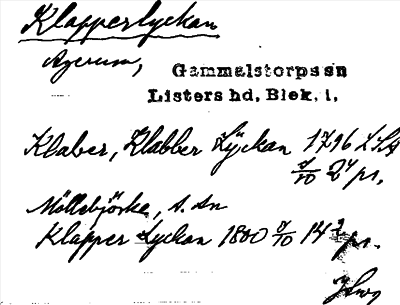 Klapperlyckan
Agerum,
Gammalstorps sn
Listers hd, Blek. l,
Klaber, Klabber Lyckan 1796 LSA
7/10 24 pr.
Möllebjörke, s. sn
Klapper Lyckan 1800 7/10 14 pr.